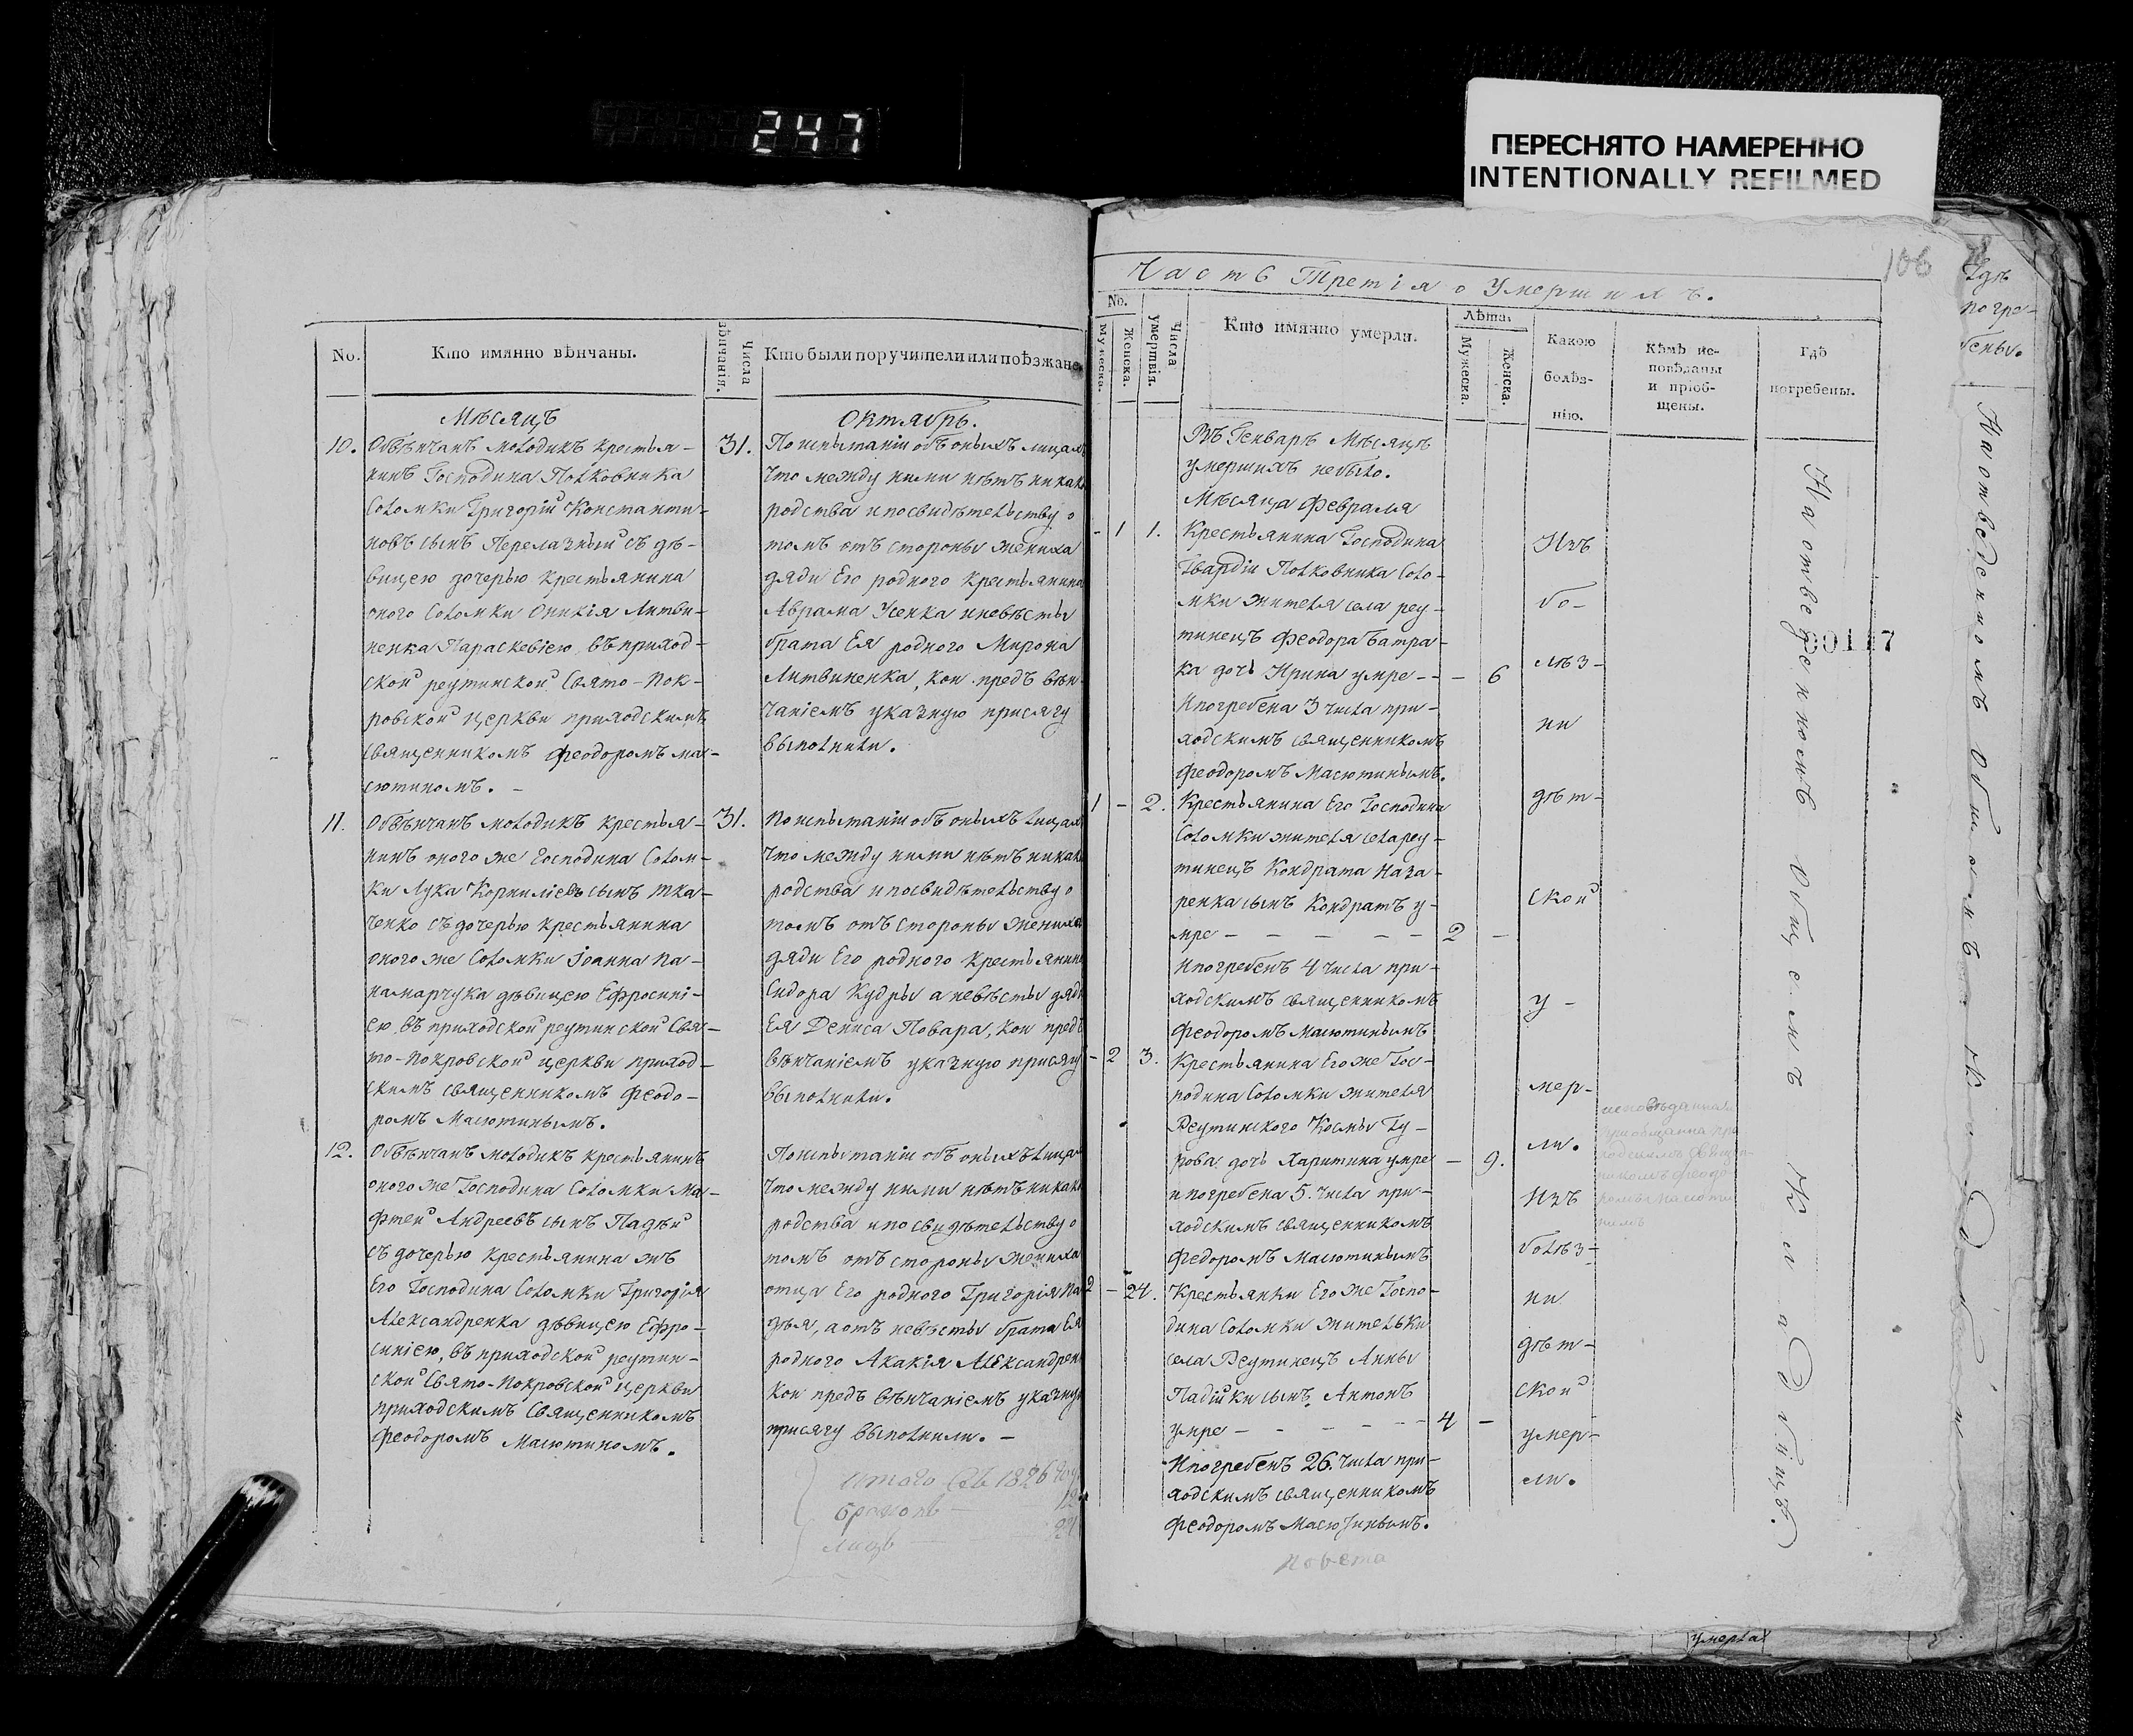 247
ПЕРЕСНЯТО НАМЕРЕННО
INTENTIONALLY REFILMED
No.
Кто имянно вѣнчаны.
Числа вѣнчанія.
Кто были поручители или поѣзжане
Мѣсяцъ
Октябрь.
10.
Обвѣнчанъ молодикъ крестья-
нинъ Господина Полковника
Соломки Григорій Константи-
новъ сынъ Перелазный съ дѣ-
вицею дочерью крестьянина
оного Соломки Оникія Литви-
ненка Параскевіею, въ приход-
ской реутинской Свято-Пок-
ровской церкви приходскимъ
священникомъ Феодоромъ Ма-
сютиномъ. -
31.
По испытаніи объ оныхъ лицахъ
что между ними нѣтъ никако
родства и по свидѣтельству о
томъ отъ стороны жениха
дяди Его родного крестьянина
Аврама Усенка и невѣсты
брата Ея родного Мирона
Литвиненка, кои предъ вѣн-
чаніемъ указную присягу
выполнили.
11.
Обвѣнчанъ молодикъ крестья-
нинъ оного же Господина Солом-
ки Лука Корниліевъ сынъ Тка-
ченко съ дочерью крестьянина
оного же Соломки Іоанна Па-
намарчука дѣвицею Ефросині-
ею, въ приходской реутинской Свя-
то-Покровской церкви приход-
скимъ священникомъ Феодо-
ромъ Масютинымъ.
31.
По испытаніи объ оныхъ лицах
что между ними нѣтъ никако
родства и по свидѣтельству о
томъ отъ стороны жениха
дяди Его родного крестьянин
Сидора Кудры а невѣсты дяди
Ея Дениса Повара, кои предъ
вѣнчаніемъ указную присягу
выполнили.
12.
Обвѣнчанъ молодикъ крестьянинъ
оного же Господина Соломки Ма-
фтей Андреевъ сынъ Падѣй
съ дочерью крестьянина жъ
Его Господина Соломки Григорія
Александренка дѣвицею Ефро-
синіею, въ приходской реутин-
ской Свято-Покровской церкви
приходскимъ Священникомъ
Феодоромъ Масютиномъ.
По испытаніи объ оныхъ лицах
что между ними нѣтъ никако
родства и по свидѣтельству о
томъ отъ стороны жениха
отца Его родного Григорія Па
дѣя, а отъ невѣсты брата Ея
родного Акакія Александрен
кои предъ вѣнчаніемъ указную
присягу выполнили. -
итого въ 1826 году
браковъ 12
лицъ
106
Часть Третія о Умершихъ.
No.
Мужеска.
Женска.
Числа умертвія.
Кто имянно умерли.
Лѣта.
Мужеска.
Женска.
Какою болѣз-
нію.
Кѣмъ ис-
повѣданы
и пріоб-
щены.
Гдѣ
погребены.
Въ Генварѣ Мѣсяцѣ
умершихъ небыло.
Мѣсяца Февраля
- 1 1.
Крестьянина Господина
Гвардіи Полковника Соло-
мки жителя села реу-
тинецъ Феодора Батра-
ка дочь Ирина умре - - - 6
И погребена 3 числа при-
ходскимъ священникомъ
Феодоромъ Масютинымъ.
1 - 2.
Крестьянина Его Господина
Соломки жителя села реу-
тинецъ Кондрата Наза-
ренка сынъ Кондратъ у-
мре - - - - - 2 -
И погребенъ 4 числа при-
ходскимъ священникомъ
Феодоромъ Масютинымъ
- 2 3.
Крестьянина Его же Гос-
подина Соломки жителя
Реутинского Космы Гу-
рова, дочь Харитина умре - 9.
и погребена 5. числа при-
ходскимъ священникомъ
Федоромъ Масютинымъ
2 - 24.
Крестьянки Его же Госпо-
дина Соломки жительки
села Реутинецъ Анны
Падійки сынъ Антонъ
умре - - - - - 4 -
И погребенъ 26. числа при-
ходскимъ священникомъ
Феодоромъ Масютинымъ.
Изъ
бо-
лѣз-
ни
дѣт-
ской
у-
мер-
ли.
Изъ
болѣз-
ни
дѣт-
ской
умер-
ли.
На отведенномъ Общемъ Кладбищѣ.
00147
Гдѣ
погре-
бены.
На отведенномъ Общемъ
умерла